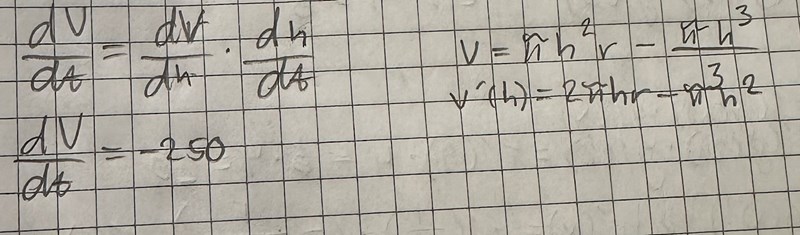 dV/dt = dV/dh · dh/dt
V = πh²r − πh³/3
V'(h) = 2πhr − πh²
dV/dt = −250